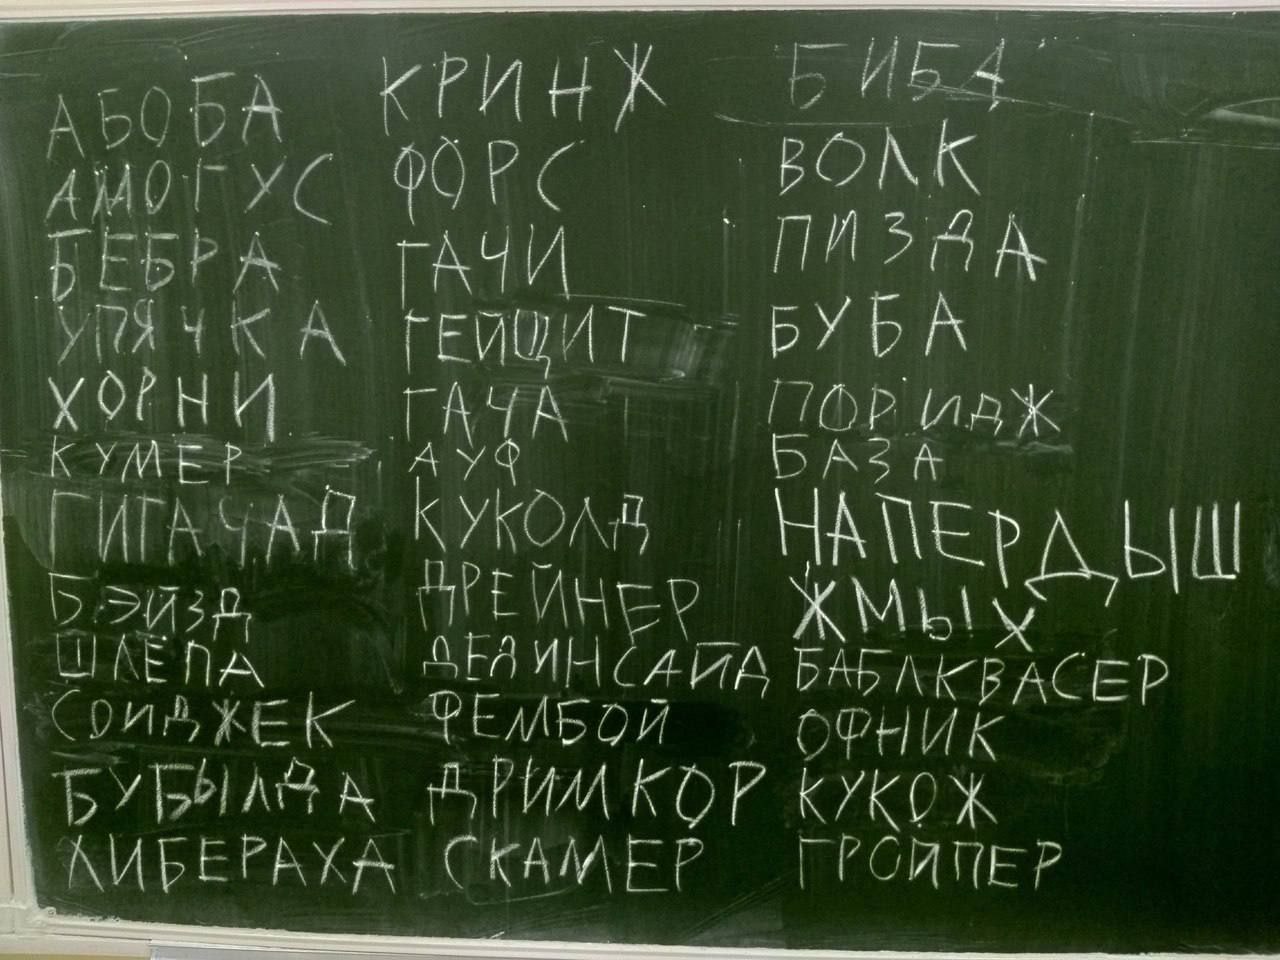 АБОБА
АМОГУС
БЕБРА
УПЯЧКА
ХОРНИ
КУМЕР
ГИГАЧАД
БЭЙЗД
ШЛЁПА
СОИДЖЕК
БУБЫЛДА
ЛИБЕРАХА
КРИНЖ
ФОРС
ГАЧИ
ГЕЙЩИТ
ГАЧА
АУФ
КУКОЛД
ДРЕЙНЕР
ДЕДИНСАЙД
ФЕМБОЙ
ДРИМКОР
СКАМЕР
БИБА
ВОЛК
ПИЗДА
БУБА
ПОРИДЖ
БАЗА
НАПЕРДЫШ
ЖМЫХ
БАБЛКВАСЕР
ОФНИК
КУКОЖ
ГРОЙПЕР